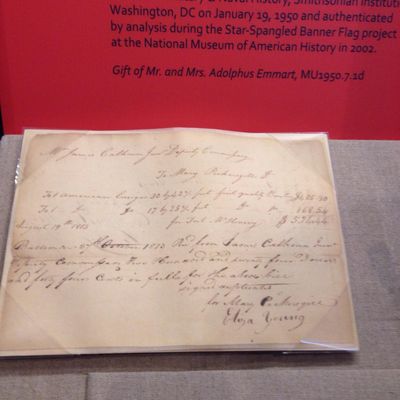 y & Naval History, Smithsonian Instituti
Washington, DC on January 19, 1950 and authenticated
by analysis during the Star-Spangled Banner Flag project
at the National Museum of American History in 2002.
Gift of Mr. and Mrs. Adolphus Emmart, MU1950.7.1d
James Calhoun Junr Deputy Commissary
To Mary Pickersgill Dr
To 1 American Ensign 30 by 42 feet first quality
To 1 Do 17 by 25 feet Do 168.54
August 19th 1813 for Fort McHenry $ 574.44
Baltimore October 1813 from James Calhoun Junr
Deputy Commissary Five Hundred and Seventy four Dollars
and forty four Cents in full for the above
signed duplicates
for Mary Pickersgill
Eliza Young